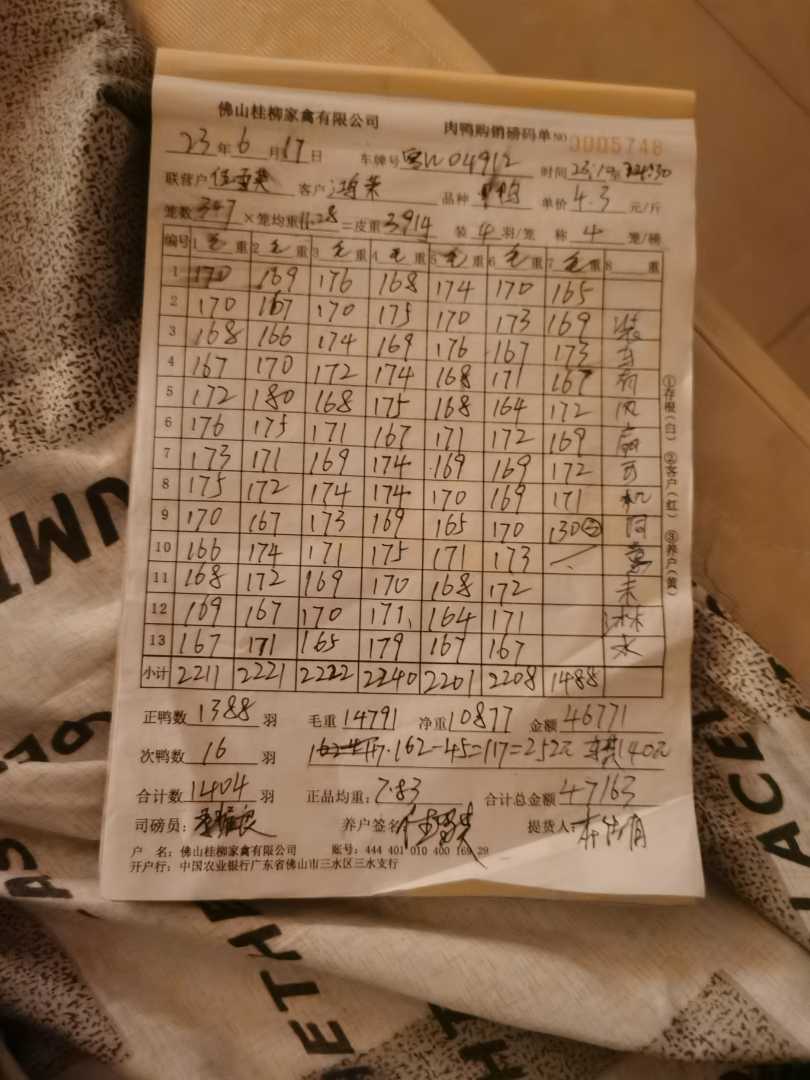 佛山桂柳家禽有限公司 肉鸭购销磅码单 NO 0005748
23年6月17日 车牌号 粤W04912 时间 23:10至
联营户 伍雪英 客户 鸿荣 品种 单价 4.3 元/斤
笼数 347 ×笼均重 11.28 =皮重 3914 装 4 羽/笼 称 4 笼/磅
编号 1 毛重 2 毛重 3 毛重 4 毛重 5 毛重 6 毛重 7 毛重 8 重
1 170 169 176 168 174 170 165
2 170 167 170 175 170 173 169 装
3 168 166 174 169 176 167 173 车
4 167 170 172 174 168 171 167 前
5 172 180 168 175 168 164 172 风
6 176 175 171 167 171 172 169 扇
7 173 171 169 174 169 169 172
8 175 172 174 174 170 169 171 机
9 170 167 173 169 165 170 130②
10 166 174 171 175 171 173
11 168 172 169 170 168 172 未
12 169 167 170 171 164 171 淋
13 167 171 165 179 167 167 水
小计 2211 2221 2222 2240 2201 2208 1488
正鸭数 1388 羽 毛重 14791 净重 10877 金额 46771
次鸭数 16 羽 162-45=117=252元 140元
合计数 1404 羽 正品均重: 7.83 合计总金额 47163
司磅员: 养户签名 伍雪英 提货人:
户 名: 佛山桂柳家禽有限公司 账号: 444 401 010 400 169 29
开户行: 中国农业银行广东省佛山市三水区三水支行
①存根(白) ②客户(红) ③养户(黄)